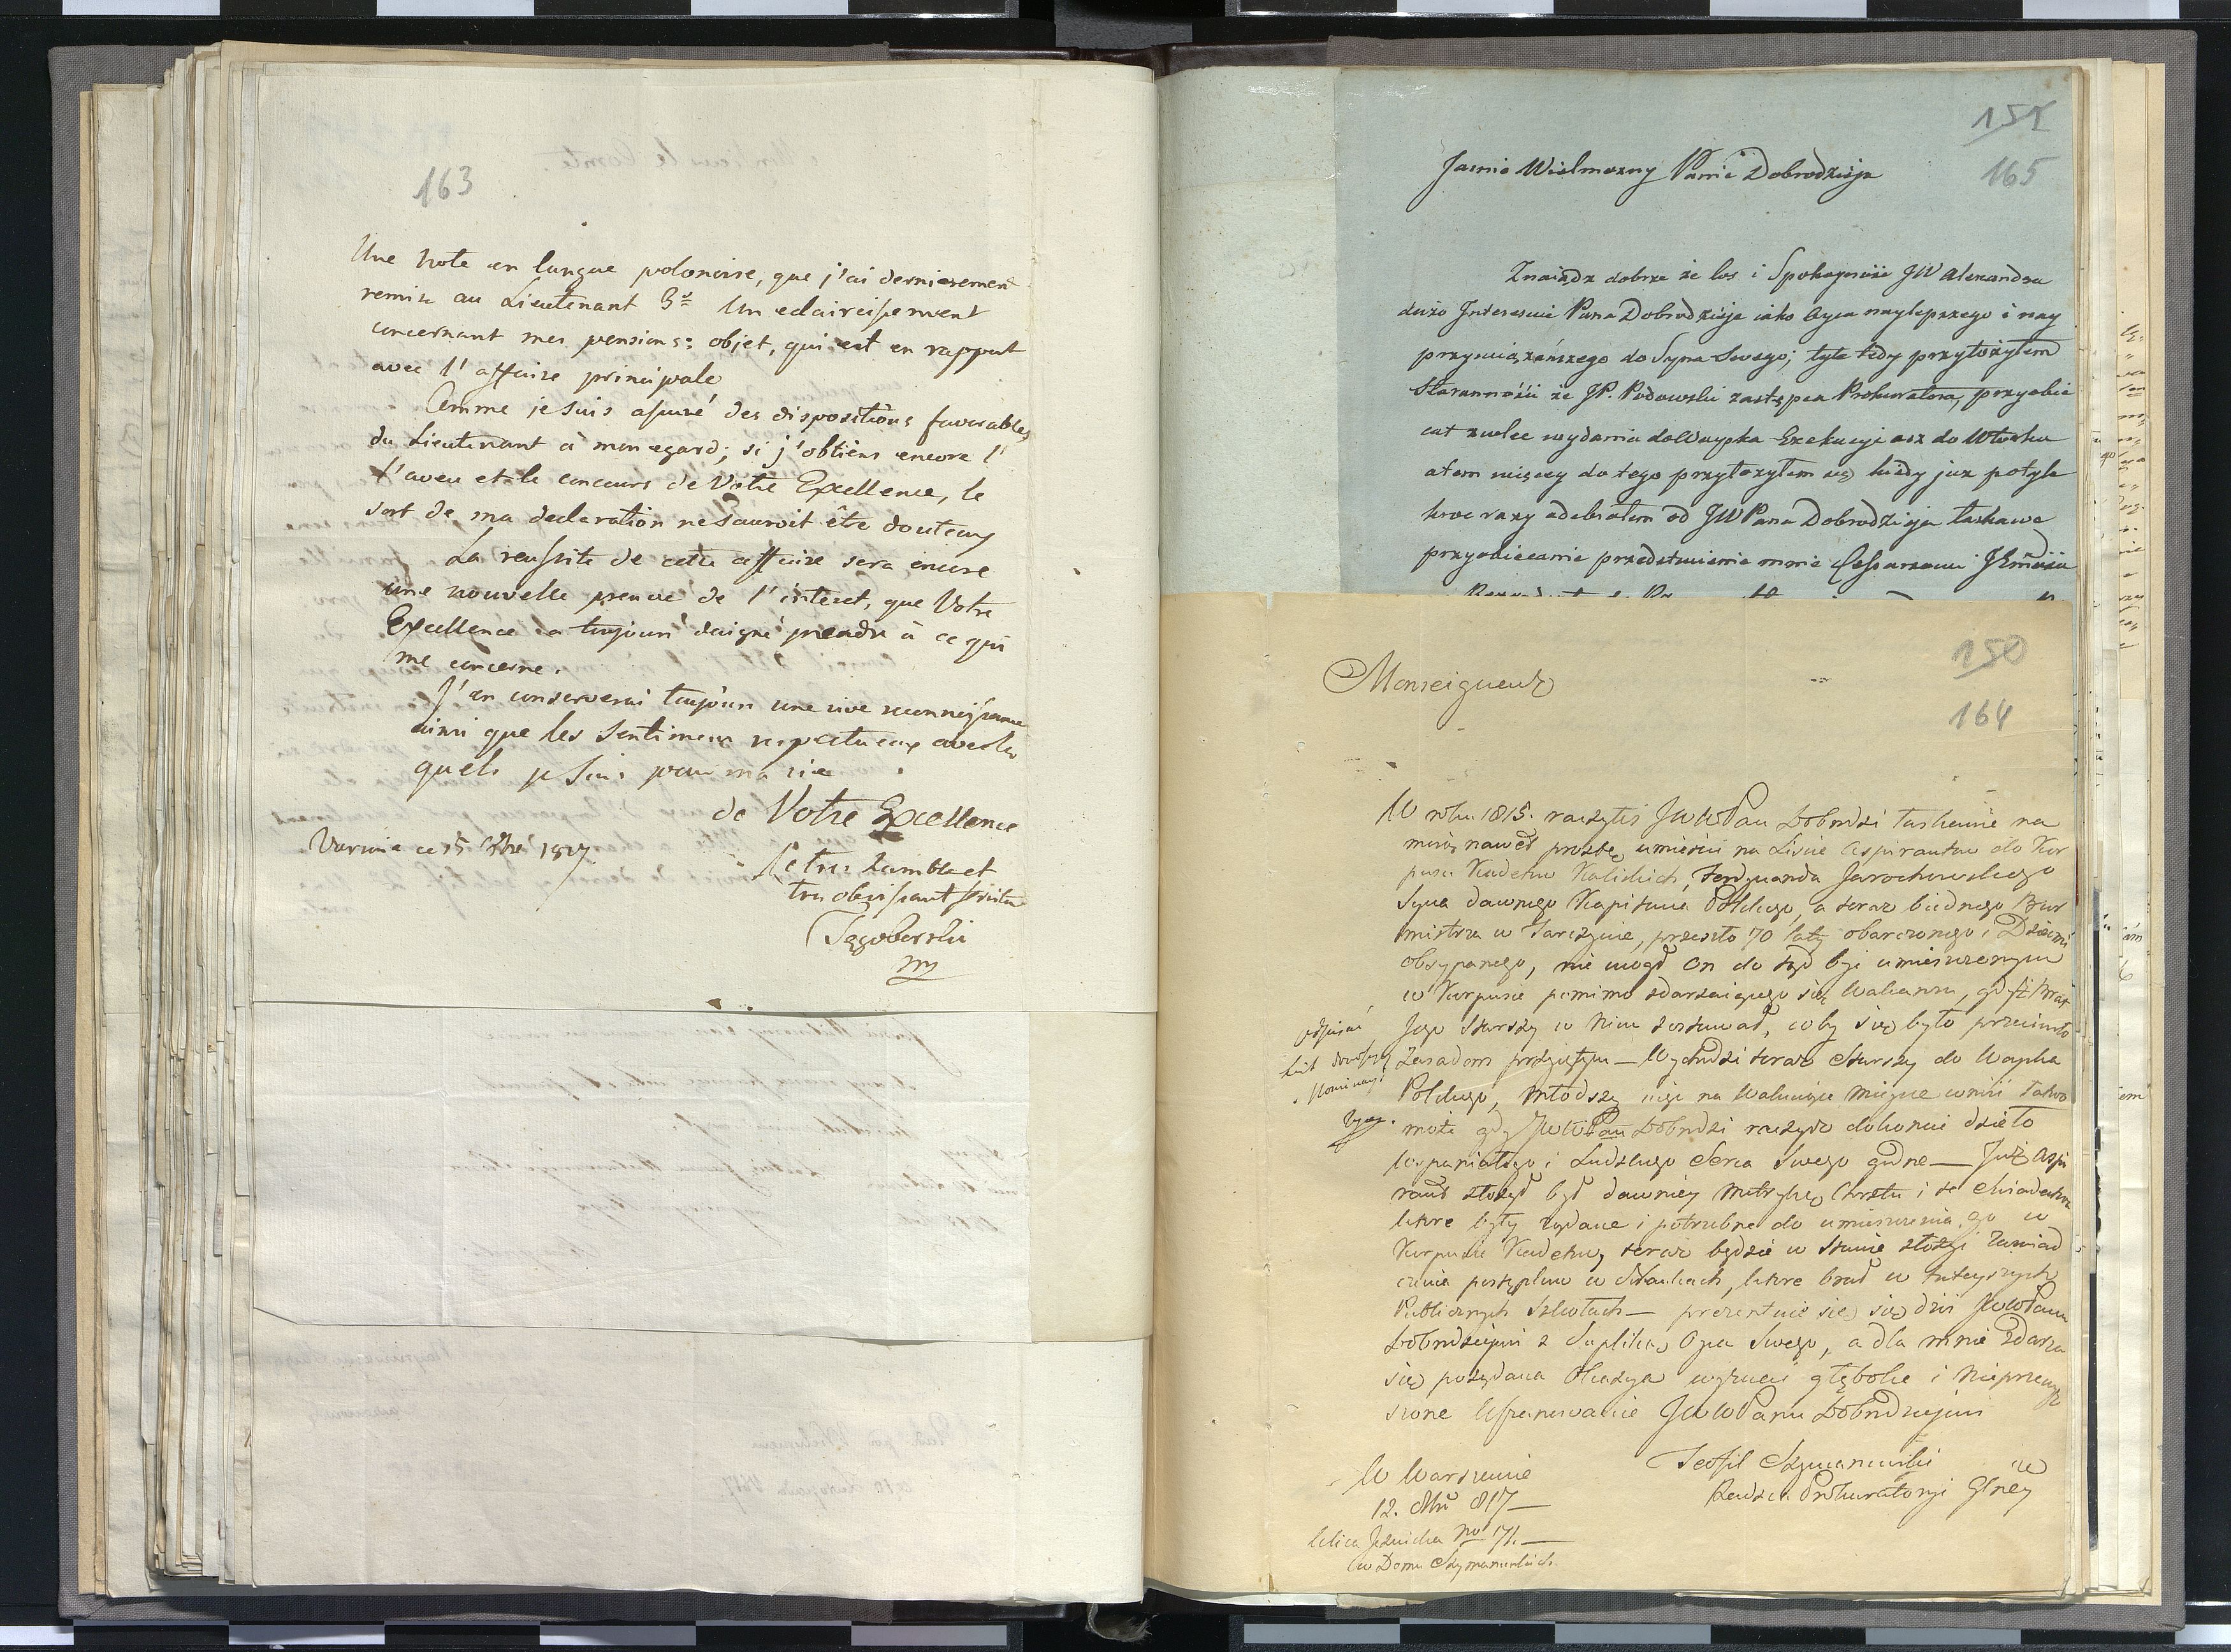 163
Une note en langue polonoise, que j'ai dernierement
remise au Lieutenant 3º Un eclaircissement
concernant mes pensions: objet, qui est en rapport
avec l'affaire principale
Comme je suis assuré des dispositions favorables
du Lieutenant à mon egard; si j'obtiens encore l'
l'aveu et le concours de Votre Excellence, le
sort de ma declaration ne sauroit être douteux
La reussite de cette affaire sera encore
une nouvelle preuve de l'interet, que Votre
Excellence a toujours daigné prendre à ce qui
me concerne.
J'en conserverai toujours une vive reconnoissance
ainsi que les sentimens respectueux avec les
quels je suis pour ma vie
de Votre Excellence
Varsovie ce 15
le tres humble et
tres obeissant serviteur
151
165
Jaśnie Wielmożny Panie Dobrodzieju
Znaiądz dobrze że los i Spokoyność JW Alexandra
dużo Interesuie Pana Dobrodzieja iako Oyca naylepszego i nay
przywiązańszego do Syna Swego; tyle tedy przyłożyłem
Staranności że JP. Podowski zastępca Prokuratora, przyobie
cał zwolec wydania do Woyska Exekucyi asz do Wtorku
atem więcey do tego przyłożyłem się kiedy już potyle
kroc razy odebrałem od JW Pana Dobrodzieja łaskawe
przyobiecanie przedstawienia mnie Cesarzowi JEmości
150
164
Monseigneur
W roku 1815. raczyłeś JWWPan Dobrodzi łaskawie na
moią nawet prozbę umieścić na Liscie Aspirantow do Kor
pusu Kadetow Kaliskich, Ferdynanda Jarochowskiego
Syna dawnego Kapitana Polskiego, a teraz biednego Bur
mistrza w Tarczynie, przeszło 70 laty obarczonego i Dziećmi
obsypanego, nie mogł On do tąd być umieszczonym
w Korpusie pomimo zdarzaiącego się Wakansu, gdyż Brat
Jego Starszy w Nim zostawał, coby się było przeciwiło
Zasadom przyiętym — Wychodzi teraz Starszy do Woyska
Polskiego, Młodszy iego na Wakuiące Mieysce wniść łatwo
może gdy JWWPan Dobrodzi raczysz dokonać dzieło
Wspaniałego i Ludzkiego Serca Swego godne — Już Aspi
rant złożył był dawniey Metrykę Chrztu i te Swiadectwa
ktore były żądane i potrzebne do umieszczenia go w
Korpusie Kadetow, teraz będzie w Stanie złożyć Zaswiad
czenia postępkow w Naukach, ktore brał w tuteyszych
Publicznych Szkołach — prezentuie się się dziś JWWPanu
Dobrodziejowi z Supliką Oyca Swego, a dla mnie zdarza
się pożądana Okazya wyznać głębokie i Nieprzerwa
Uszanowanie JWWPanu Dobrodziejowi
Teofil Szymanowski
Radzca Prokuratoryi Glney
W Warszawie
12. 817 —
Ulica Jezuicka No 71. —
w Domu Szymanowskich